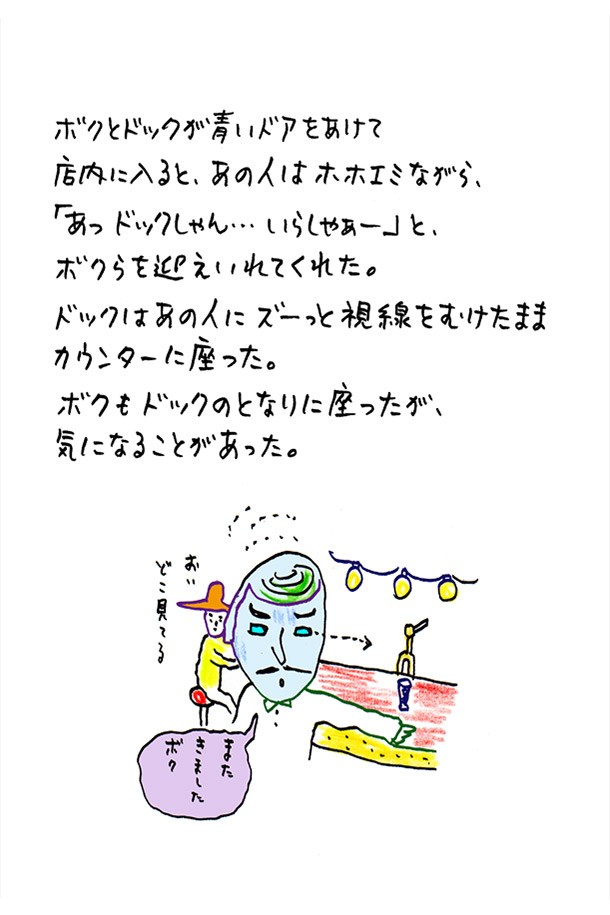 ボクとドックが青いドアをあけて
店内に入ると、あの人はホホエミながら、
「あっ ドックしゃん… いらしゃぁー」と、
ボクらを迎えいれてくれた。
ドックはあの人にズーっと視線をむけたまま
カウンターに座った。
ボクもドックのとなりに座ったが、
気になることがあった。
おい
どこ見てる
また
きました
ボク